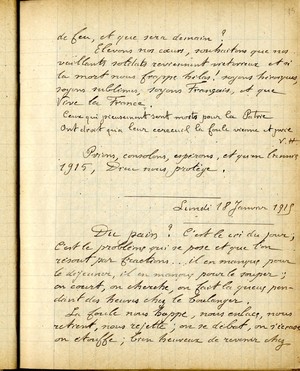 de feu, et que sera demain ?
Elevons nos cœurs, souhaitons que nos
vaillants soldats reviennent victorieux et si
la mort nous frappe hélas ! soyons héroïques,
soyons sublimes, soyons Français, et que
Vive la France.
Ceux qui pieusement sont morts pour la Patrie
Ont droit qu'à leur cercueil la foule vienne et prie
V. H
Prions, consolons, espérons, et qu'en
1915, Dieu nous protège.
Lundi 18 Janvier 1915
Du pain ? C'est le cri du jour,
C'est le problème qui se pose et que l'on
résout par fractions... il en manque pour
le déjeuner, il en manque pour le souper ;
on court, on cherche, on fait la queue pen-
dant des heures chez le boulanger.
La foule nous happe, nous enlace, nous
retient, nous rejette ; on se débat, on s'écrase
on étouffe ; bien heureux de revenir chez